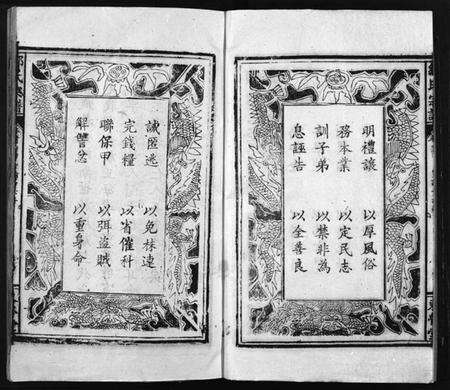 明禮讓 以厚風俗
務本業 以定民志
訓子弟 以禁非為
息誣告 以全善良
誡匿逃 以免株連
完錢糧 以省催科
聯保甲 以弭盜賊
解讐忿 以重身命